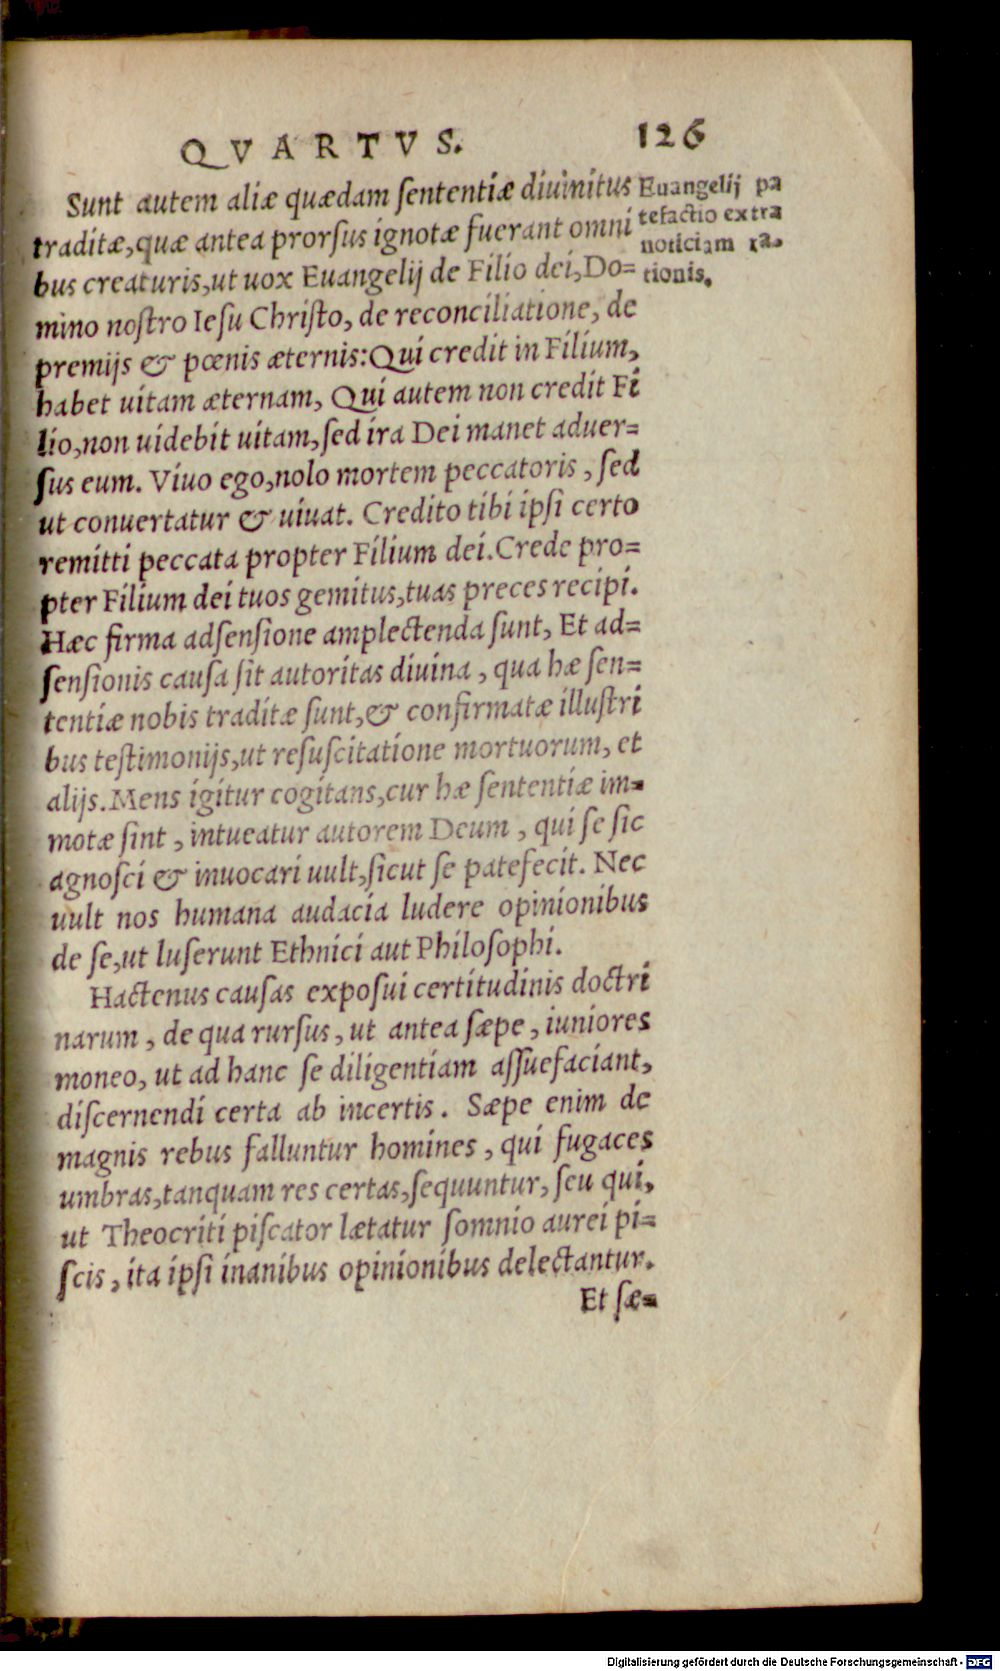 QVARTVS. 126
Sunt autem aliæ quædam ſententiæ diuinitus
traditæ,quæ antea prorſus ignotæ fuerant omni
bus creaturis,ut uox Euangelij de Filio dei,Do=
mino noſtro Ieſu Chriſto, de reconciliatione, de
premijs & pœnis æternis:Qui credit in Filium,
habet uitam æternam, Qui autem non credit Fi
lio,non uidebit uitam,ſed ira Dei manet aduer=
ſus eum. Viuo ego,nolo mortem peccatoris, ſed
ut conuertatur & uiuat. Credito tibi ipſi certo
remitti peccata propter Filium dei.Crede pro=
pter Filium dei tuos gemitus,tuas preces recipi.
Hæc firma adſenſione amplectenda ſunt, Et ad=
ſenſionis cauſa ſit autoritas diuina, qua hæ ſen=
tentiæ nobis traditæ ſunt,& confirmatæ illuſtri
bus teſtimonijs,ut reſuſcitatione mortuorum, et
alijs.Mens igitur cogitans,cur hæ ſententiæ im=
motæ ſint, intueatur autorem Deum, qui ſe ſic
agnoſci & inuocari uult,ſicut ſe patefecit. Nec
uult nos humana audacia ludere opinionibus
de ſe,ut luſerunt Ethnici aut Philoſophi.
Hactenus cauſas expoſui certitudinis doctri
narum, de qua rurſus, ut antea ſæpe, iuniores
moneo, ut ad hanc ſe diligentiam aſſuefaciant,
diſcernendi certa ab incertis. Sæpe enim de
magnis rebus falluntur homines, qui fugaces
umbras,tanquam res certas,ſequuntur, ſeu qui,
ut Theocriti piſcator lætatur ſomnio aurei pi=
ſcis, ita ipſi inanibus opinionibus delectantur.
Et ſæ=
Euangelij pa
tefactio extra
noticiam ra=
tionis.
Digitalisierung gefördert durch die Deutsche Forschungsgemeinschaft - DFG